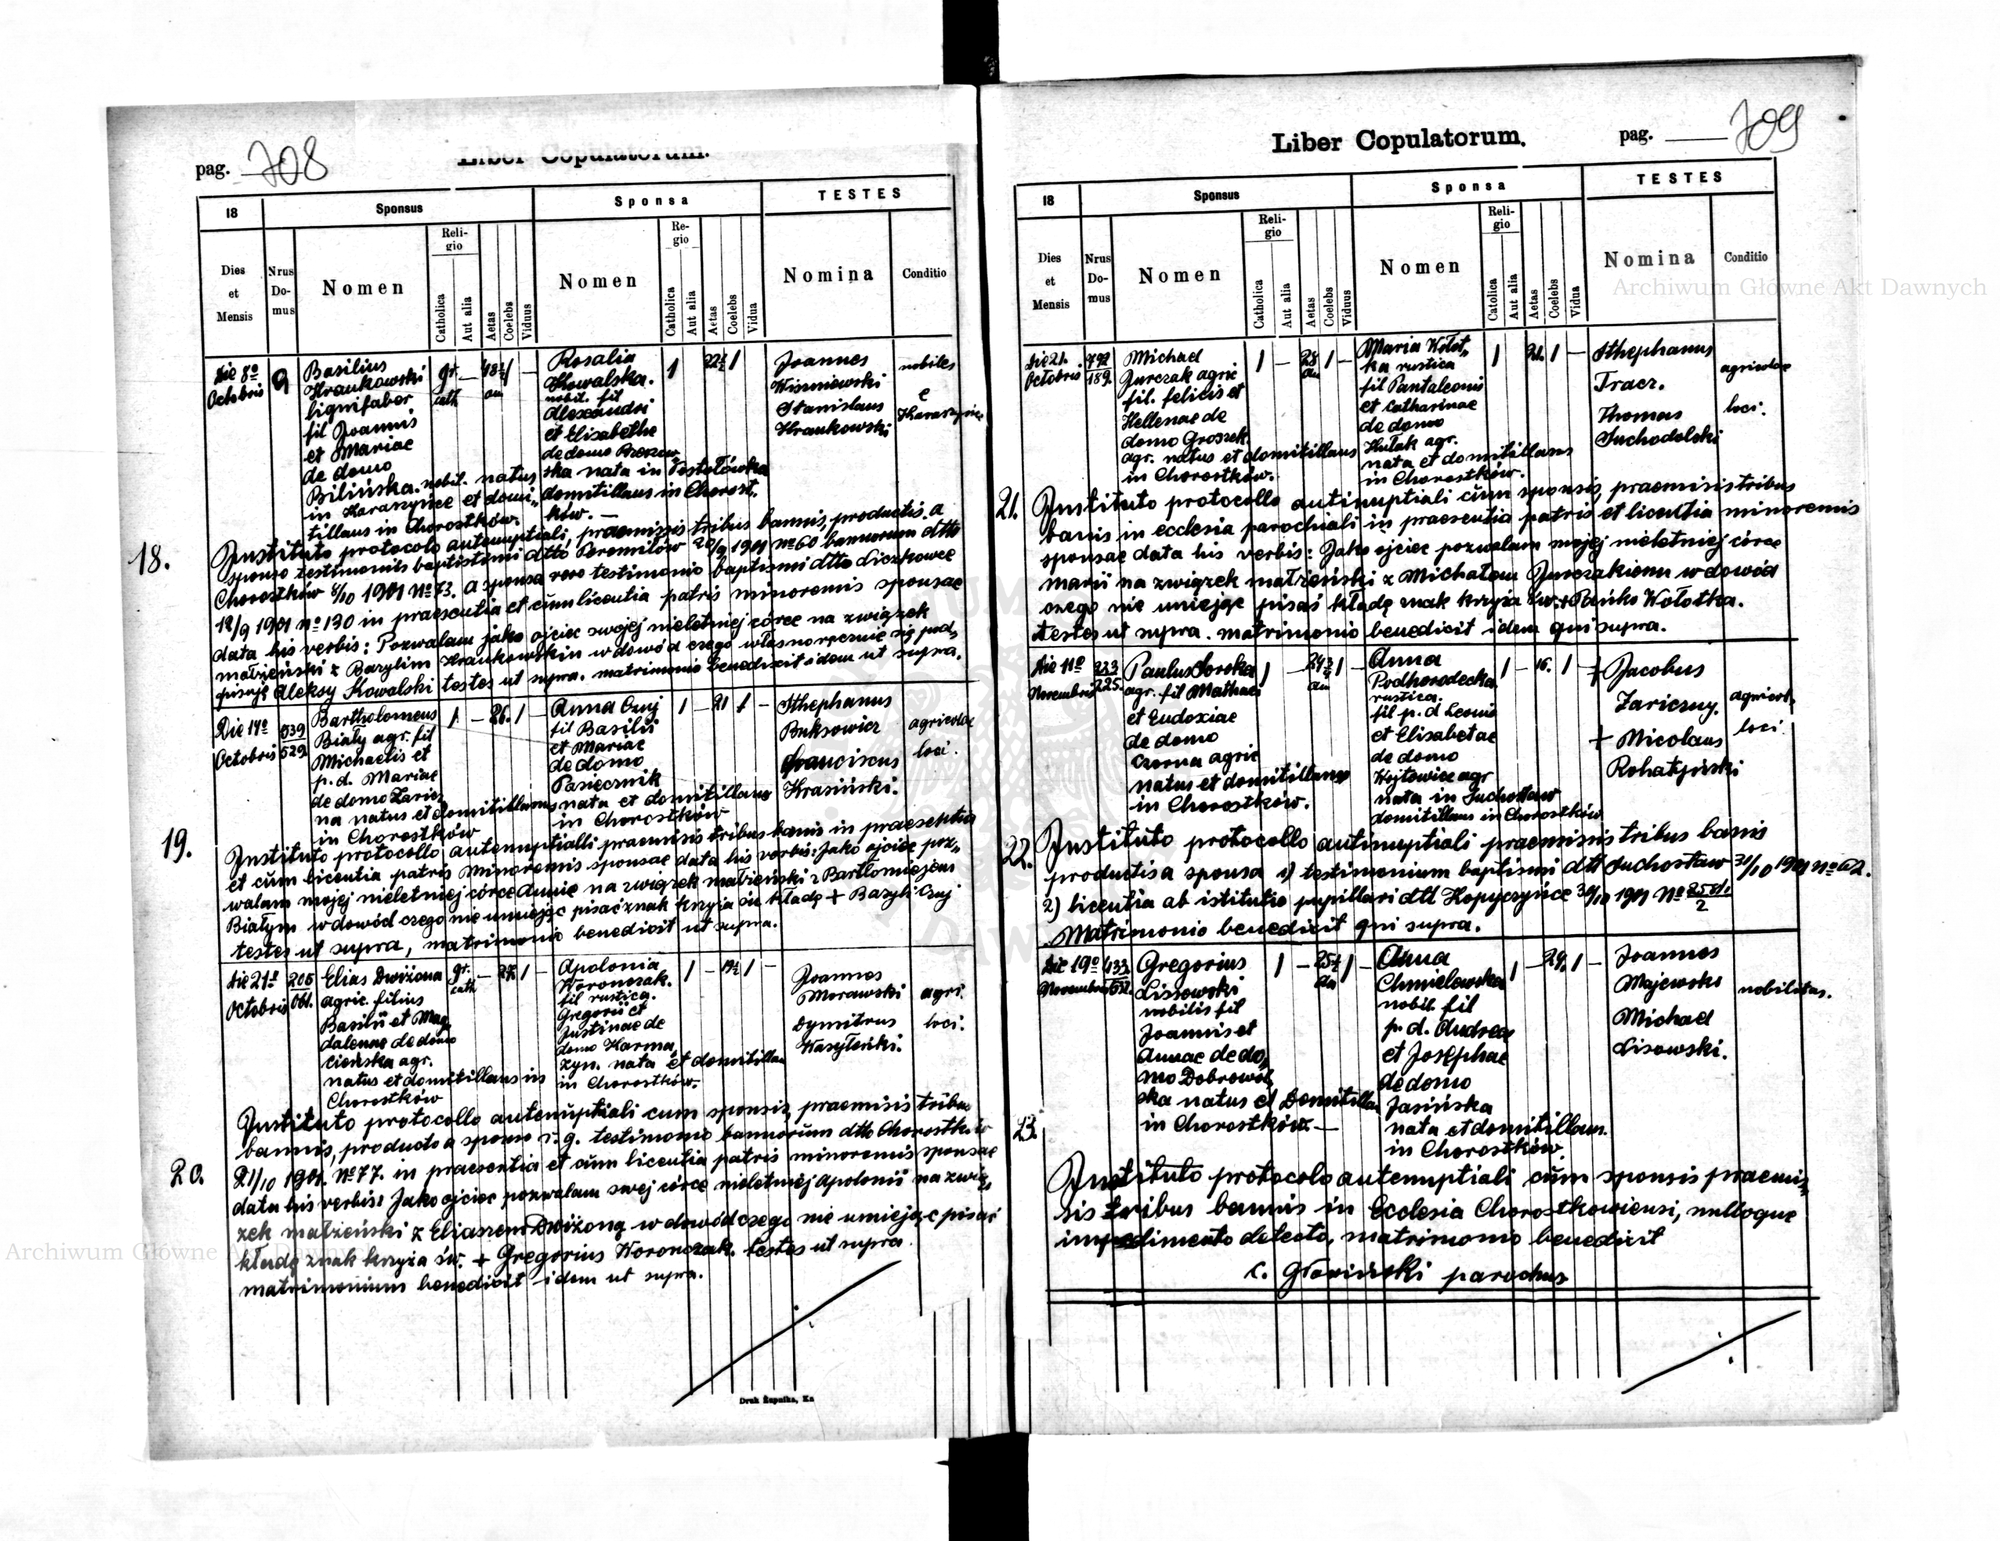 pag. 708
Liber Copulatorum.
18
Sponsus
Sponsa
TESTES
Dies et Mensis
Nrus Domus
Nomen
Religio
Catholica
Aut alia
Aetas
Coelebs
Viduus
Nomen
Regio
Catholica
Aut alia
Aetas
Coelebs
Vidua
Nomina
Conditio
18.
Die 8º
Octobris
9
Basilius
Hraukowski
lignifaber
fil Joannis
et Mariae
de domo
Bilińska. nobil. natus
in Karaszyńce et domi-
tillans in Chorostków.
gr.
cath
Rosalia
Kowalska.
nobil. fil
Alexandri
et Elisabethe
de domo
ska nata in
domitillans in Chorost.
ków. —
1
22½
1
Joannes
Wiśniewski
Stanislaus
Hraukowski
nobiles
e
Instituto protocolo autenuptiali, praemissis tribus bannis, productis a
sponso testimoniis baptistimi dtto Peremilów 20/9 1901 nº 60 bannorum dtto
Chorostków 8/10 1901 Nº 73. a sponsa vero testimonio baptismi dtto Liczkowce
12/9 1901 nº 130 in praesentia et cum licentia patris minorenis sponsae
data his verbis: Pozwalam jako ojciec swojej nieletniej córce na związek
małżeński z Bazylim Hraukowskim w dowód czego własnoręcznie się pod-
pisuję Aleksy Kowalski testes ut supra. matrimonio benedixit idem ut supra.
19.
Die 14º
Octobris
539
529
Bartholomeus
Biały agr. fil
Michaelis et
p. d. Mariae
de domo Zaricz
na natus et domitillans
in Chorostków
1 — 26. 1 —
Anna Cuj
fil Basilii
et Mariae
de domo
Pasiecznik
nata et domitillans
in Chorostków
1 — 21 1 —
Sthephanus
Buksowicz
Franciscus
Krasiński.
agricolae
loci.
Instituto protocollo autenuptialli praemisis tribus banis in praesentia
et cum licentia patris minorenis sponsae data his verbis: Jako ojciec poz-
walam mojej nieletniej córce Annie na związek małżeński z Bartłomiejem
Białym w dowód czego nie umiejąc pisać znak krzyża św. kładę + Bazyli Cuj
testes ut supra, matrimonio benedixit ut supra.
20.
Die 21º
Octobris
205
Elias Dwiżona
agric. filius
Basilii et Mag-
dalenae de domo
Cieńska agr.
natus et domitillans in
Chorostków
gr.
cath
— 27 1 —
Apolonia
Woronczak.
fil rustica.
Gregorii et
Justinae de
domo Harma,
zyn. nata et domitillan
in Chorostków.
1 — 19½ 1 —
Joannes
Morawski
Dymitrus
Wasyleńki.
agri.
loci.
Instituto protocollo autenuptiali cum sponsis, praemisis tribus
bannis, producto a sponso r. g. testimonio bannorum dtto Chorostków
21/10 1901. Nº 77. in praesentia et cum licentia patris minorenis sponsae
data his verbis: Jako ojciec pozwalam swej córce nieletniej Apolonii na zwią-
zek małżeński z Eliaszem Dwiżoną w dowód czego nie umiejąc pisać
kładę znak krzyża św. + Gregorius Woronczak. testes ut supra
matrimonium benedixit idem ut supra.
pag. 709
Liber Copulatorum.
18
Sponsus
Sponsa
TESTES
Dies et Mensis
Nrus Domus
Nomen
Religio
Catholica
Aut alia
Aetas
Coelebs
Viduus
Nomen
Religio
Catolica
Aut alia
Aetas
Coelebs
Vidua
Nomina
Conditio
21.
Die 21.
Octobris
792
189.
Michael
Jurczak agric
fil. felicis et
Hellenae de
domo Groszek.
agr. natus et domitillans
in Chorostków.
1 — 28 1 —
an
Maria Wołot-
ka rustica
fil Pantaleonis
et Catharinae
de domo
Hułak agr.
nata et domitillans
in Chorostków.
1 21. 1 —
Sthephanus
Tracz.
Thomas
Suchodolski
agricolae
loci.
Instituto protocollo autinuptiali cum sponsis, praemisis tribus
banis in ecclesia parochiali in praesentia patris et licentia minorenis
sponsae data his verbis: Jako ojciec pozwalam mojej nieletniej córce
Marii na związek małżeński z Michałem Jurczakiem w dowód
czego nie umiejąc pisać kładę znak krzyża św. + Pańko Wołotka.
testes ut supra. matrimonio benedixit idem qui supra.
22.
Die 11º
Novembris
223
225.
Paulus Sorska
agr. fil Mathaei
et Eudoxiae
de domo
Czorna agric
natus et domitillans
in Chorostków.
1 — 24¾ 1 —
an
Anna
Podhorodecka
rustica.
fil p. d Leonis
et Elisabetae
de domo
Wojtowicz agr
nata in Suchostaw
domitillans in Chorostków
1 — 16. 1
+ Jacobus
Zariczny.
+ Nicolaus
Rohatyński
agricol.
loci.
Instituto protocollo autinuptiali praemisis tribus banis
productis a sponsa 1) testimonium baptismi dtt Suchostaw 31/10 1901 nº 62.
2) licentia ab istitutio pupillari dtt Kopyczyńce 30/10 1901 Nº
Matrimonio benedixit qui supra.
23.
Die 19º
Novembris
433
Gregorius
Lissowski
nobilis fil
Joannis et
Annae de do-
mo Dobrowol
ska natus et Domitillans
in Chorostków. —
1 — 25½ 1 —
an
Anna
Chmielowska
nobil. fil
p. d. Andreae
et Josephae
de domo
Jasińska
nata et domitillans.
in Chorostków.
1 — 29. 1 —
Joannes
Majewski
Michael
Lisowski.
nobilitas.
Instituto protocolo autenuptiali cum sponsis praemis-
sis tribus bannis in Ecclesia Chorostkowiensi, nulloque
impedimento detecto, matrimonio benedixit
parochus
Archiwum Główne Akt Dawnych
Archiwum Główne Akt Dawnych